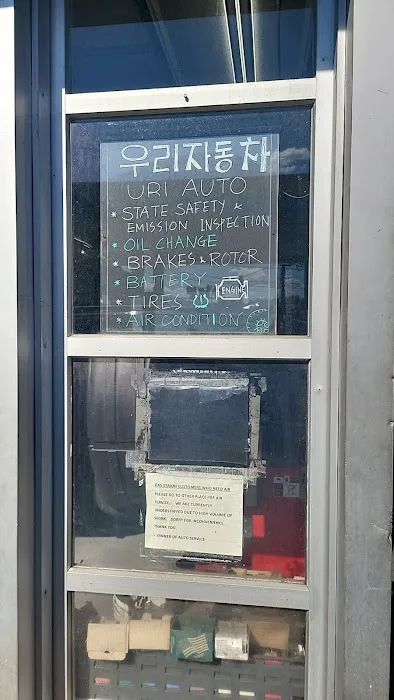 우리자동차
URI AUTO
* STATE SAFETY &
EMISSION INSPECTION
* OIL CHANGE
* BRAKES & ROTOR
* BATTERY
ENGINE
* TIRES
* AIR CONDITION
GAS STATION CUSTOMERS WHO NEED AIR
PLEASE GO TO OTHER PLACE FOR AIR
SERVICE. WE ARE CURRENTLY
UNDERSTAFFED DUE TO HIGH VOLUME OF
WORK. SORRY FOR INCONVENIENCE.
THANK YOU.
- OWNER OF AUTO SERVICE